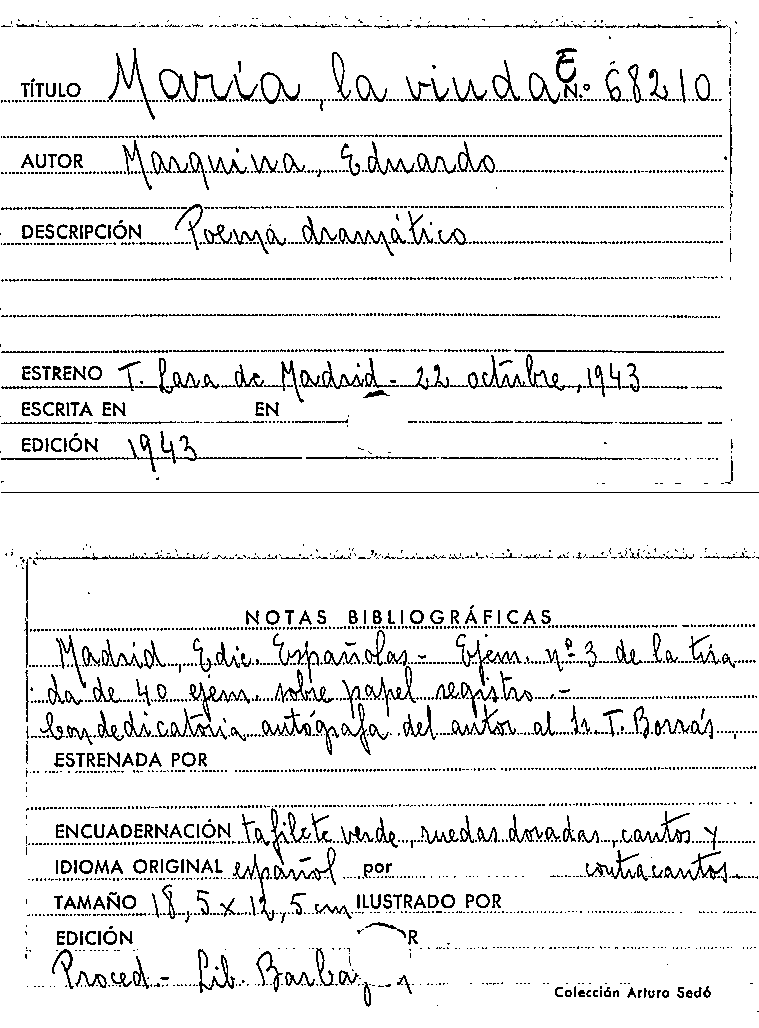 TÍTULO María, la viuda E N.º 68210
AUTOR Marquina, Eduardo
DESCRIPCIÓN Poema dramático
ESTRENO T. Lara de Madrid - 22 octubre, 1943
ESCRITA EN EN
EDICIÓN 1943
NOTAS BIBLIOGRÁFICAS
Madrid, Edic. Españolas - Ejem. nº 3 de la tira
da de 40 ejem. sobre papel registro.-
Con dedicatoria autógrafa del autor al Sr. T. Borrás.
ESTRENADA POR
ENCUADERNACIÓN tafilete verde, ruedas doradas, cantos y
IDIOMA ORIGINAL español por contracantos.
TAMAÑO 18,5 x 12,5 cm ILUSTRADO POR
EDICIÓN R
Proced.- Lib. Barbaz
Colección Arturo Sedó